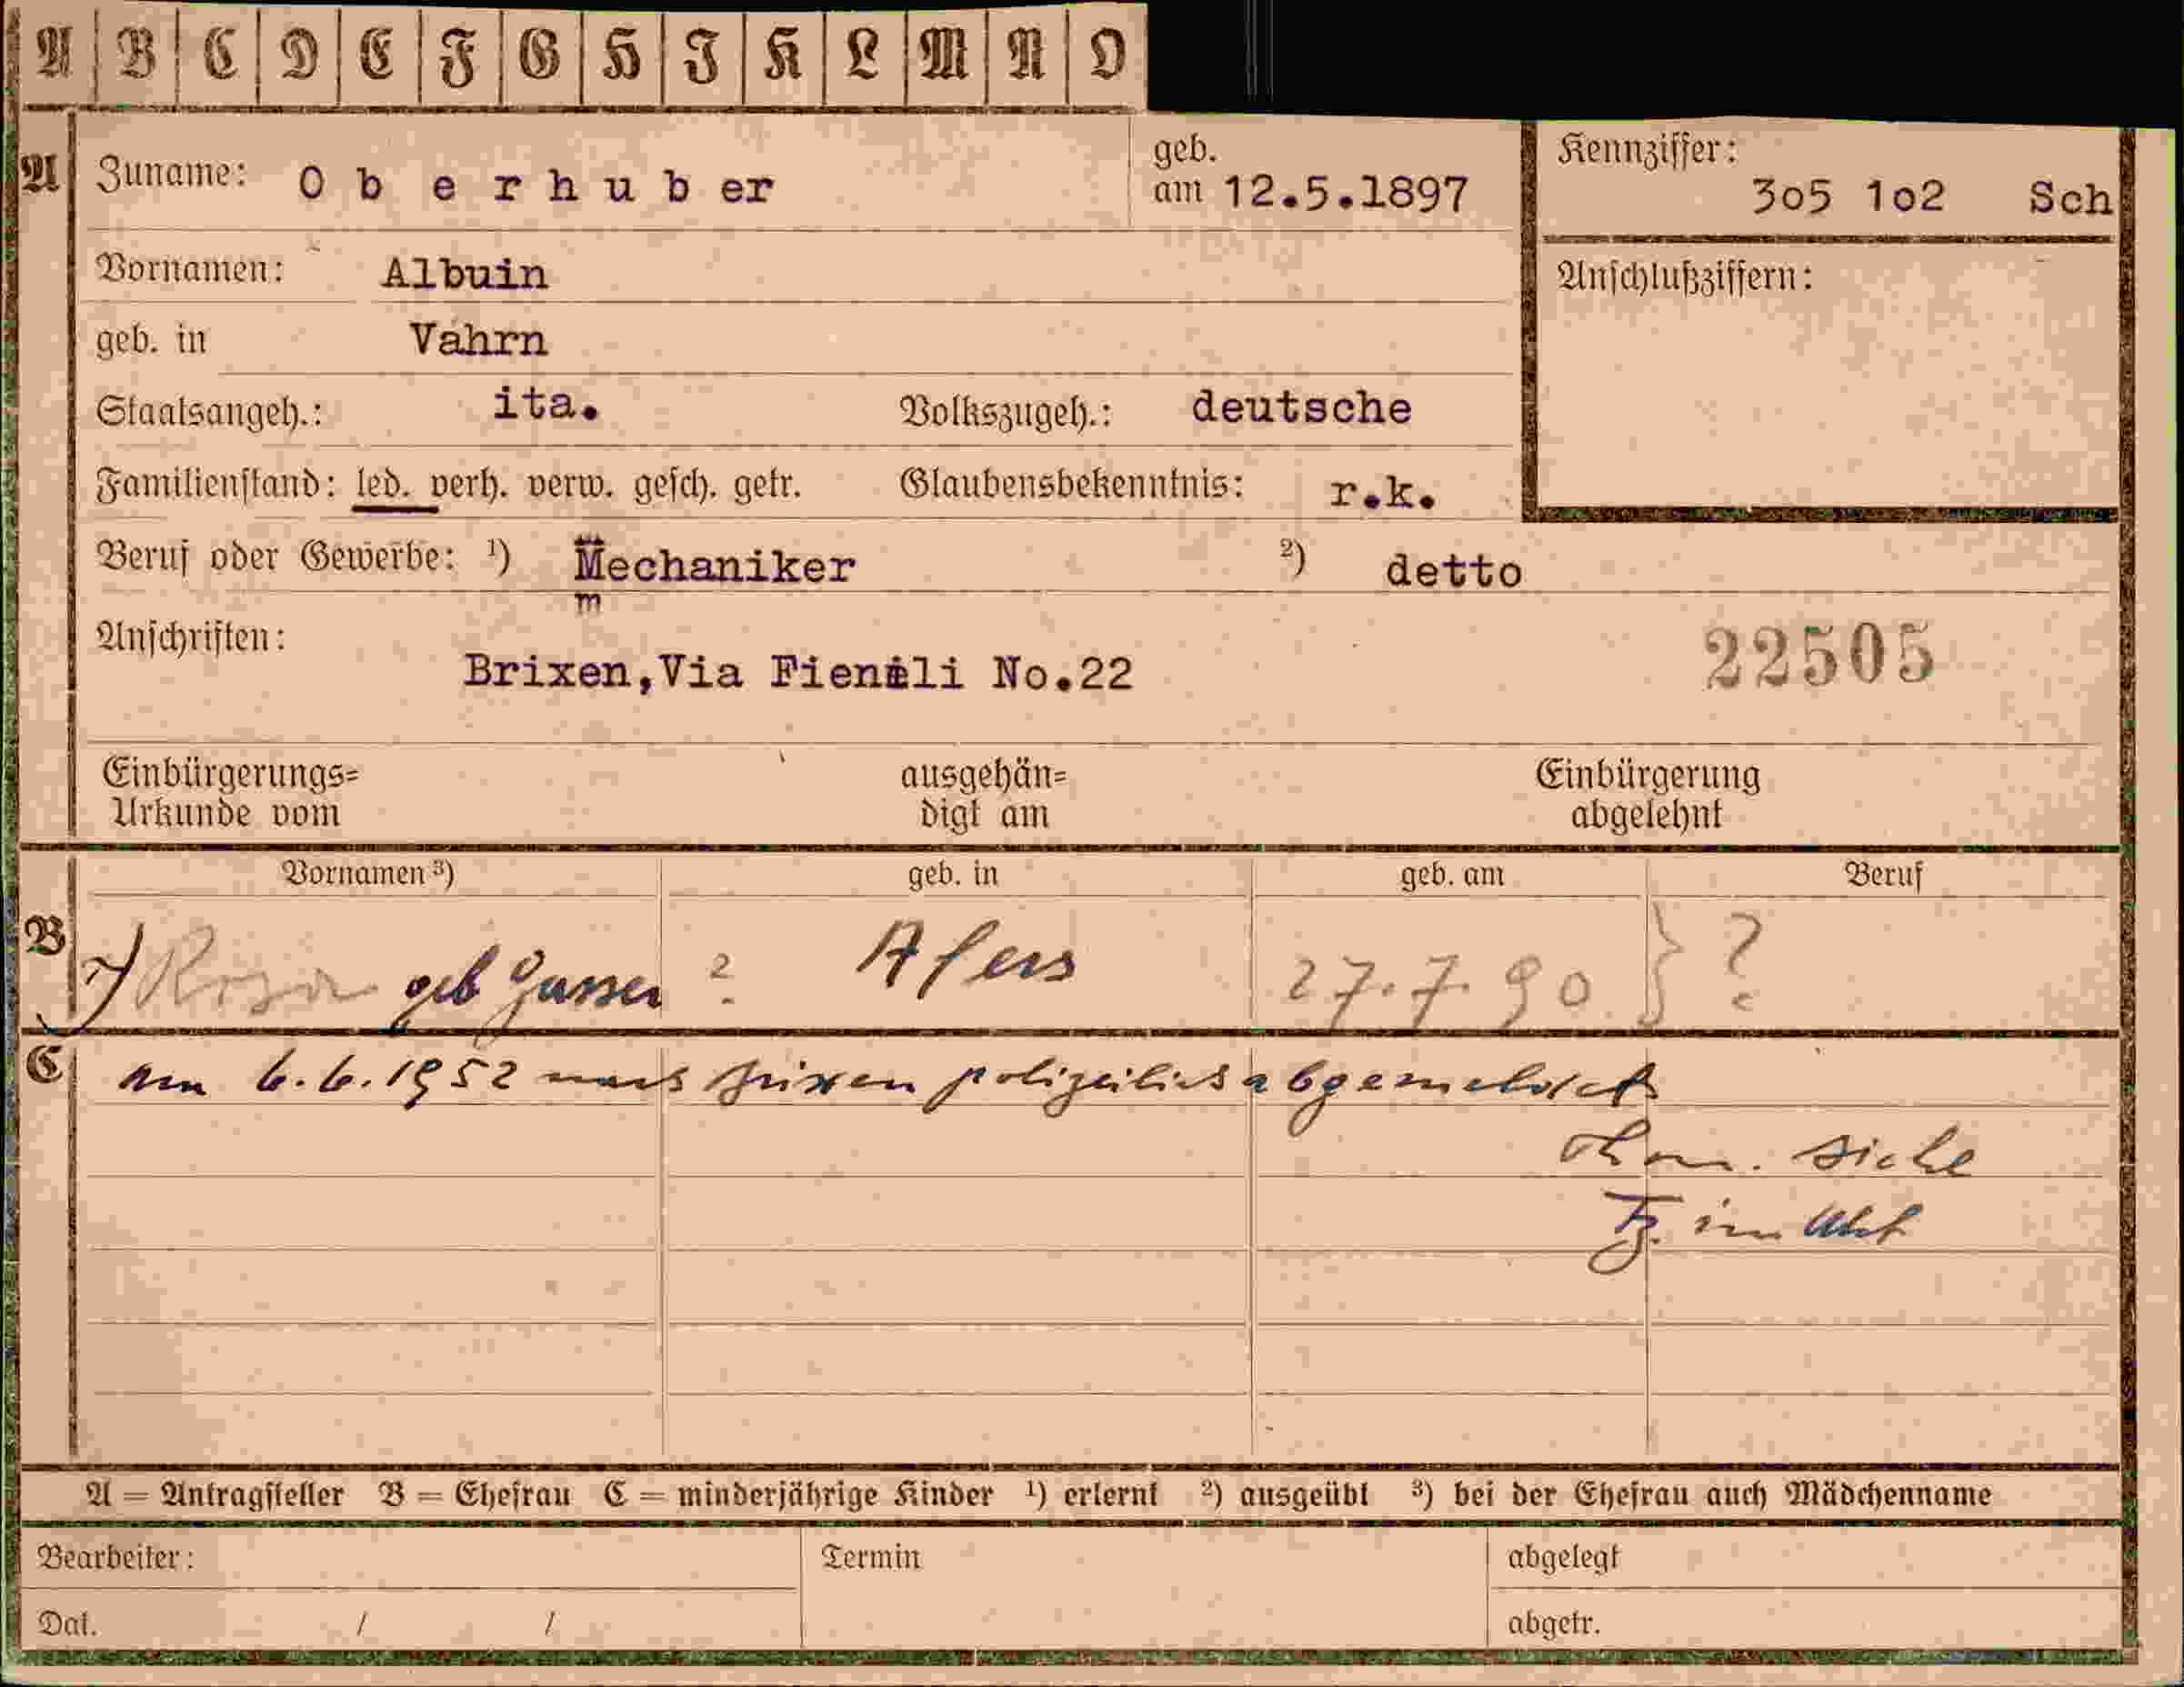 A B C D E F G H I K L M N O
A Zuname: O b e r h u b er geb. am 12.5.1897 Kennziffer: 3o5 1o2 Sch
Vornamen: Albuin Anschlußziffern:
geb. in Vahrn
Staatsangeh.: ita. Volkszugeh.: deutsche
Familienstand: led. verh. verw. gesch. getr. Glaubensbekenntnis: r.k.
Beruf oder Gewerbe: ¹) Mechaniker ²) detto
m
Anschriften:
Brixen,Via Fienili No.22 22505
Einbürgerungs=
Urkunde vom
ausgehän=
digt am
Einbürgerung
abgelehnt
Vornamen ³) geb. in geb. am Beruf
B Rosa geb Gasser ? Afers 27.7.90 } ?
C am 6.6.1952 nach Brixen polizeilich abgemeldet
siehe
im Akt
A = Antragsteller B = Ehefrau C = minderjährige Kinder ¹) erlernt ²) ausgeübt ³) bei der Ehefrau auch Mädchenname
Bearbeiter: Termin abgelegt
Dat. / / abgetr.